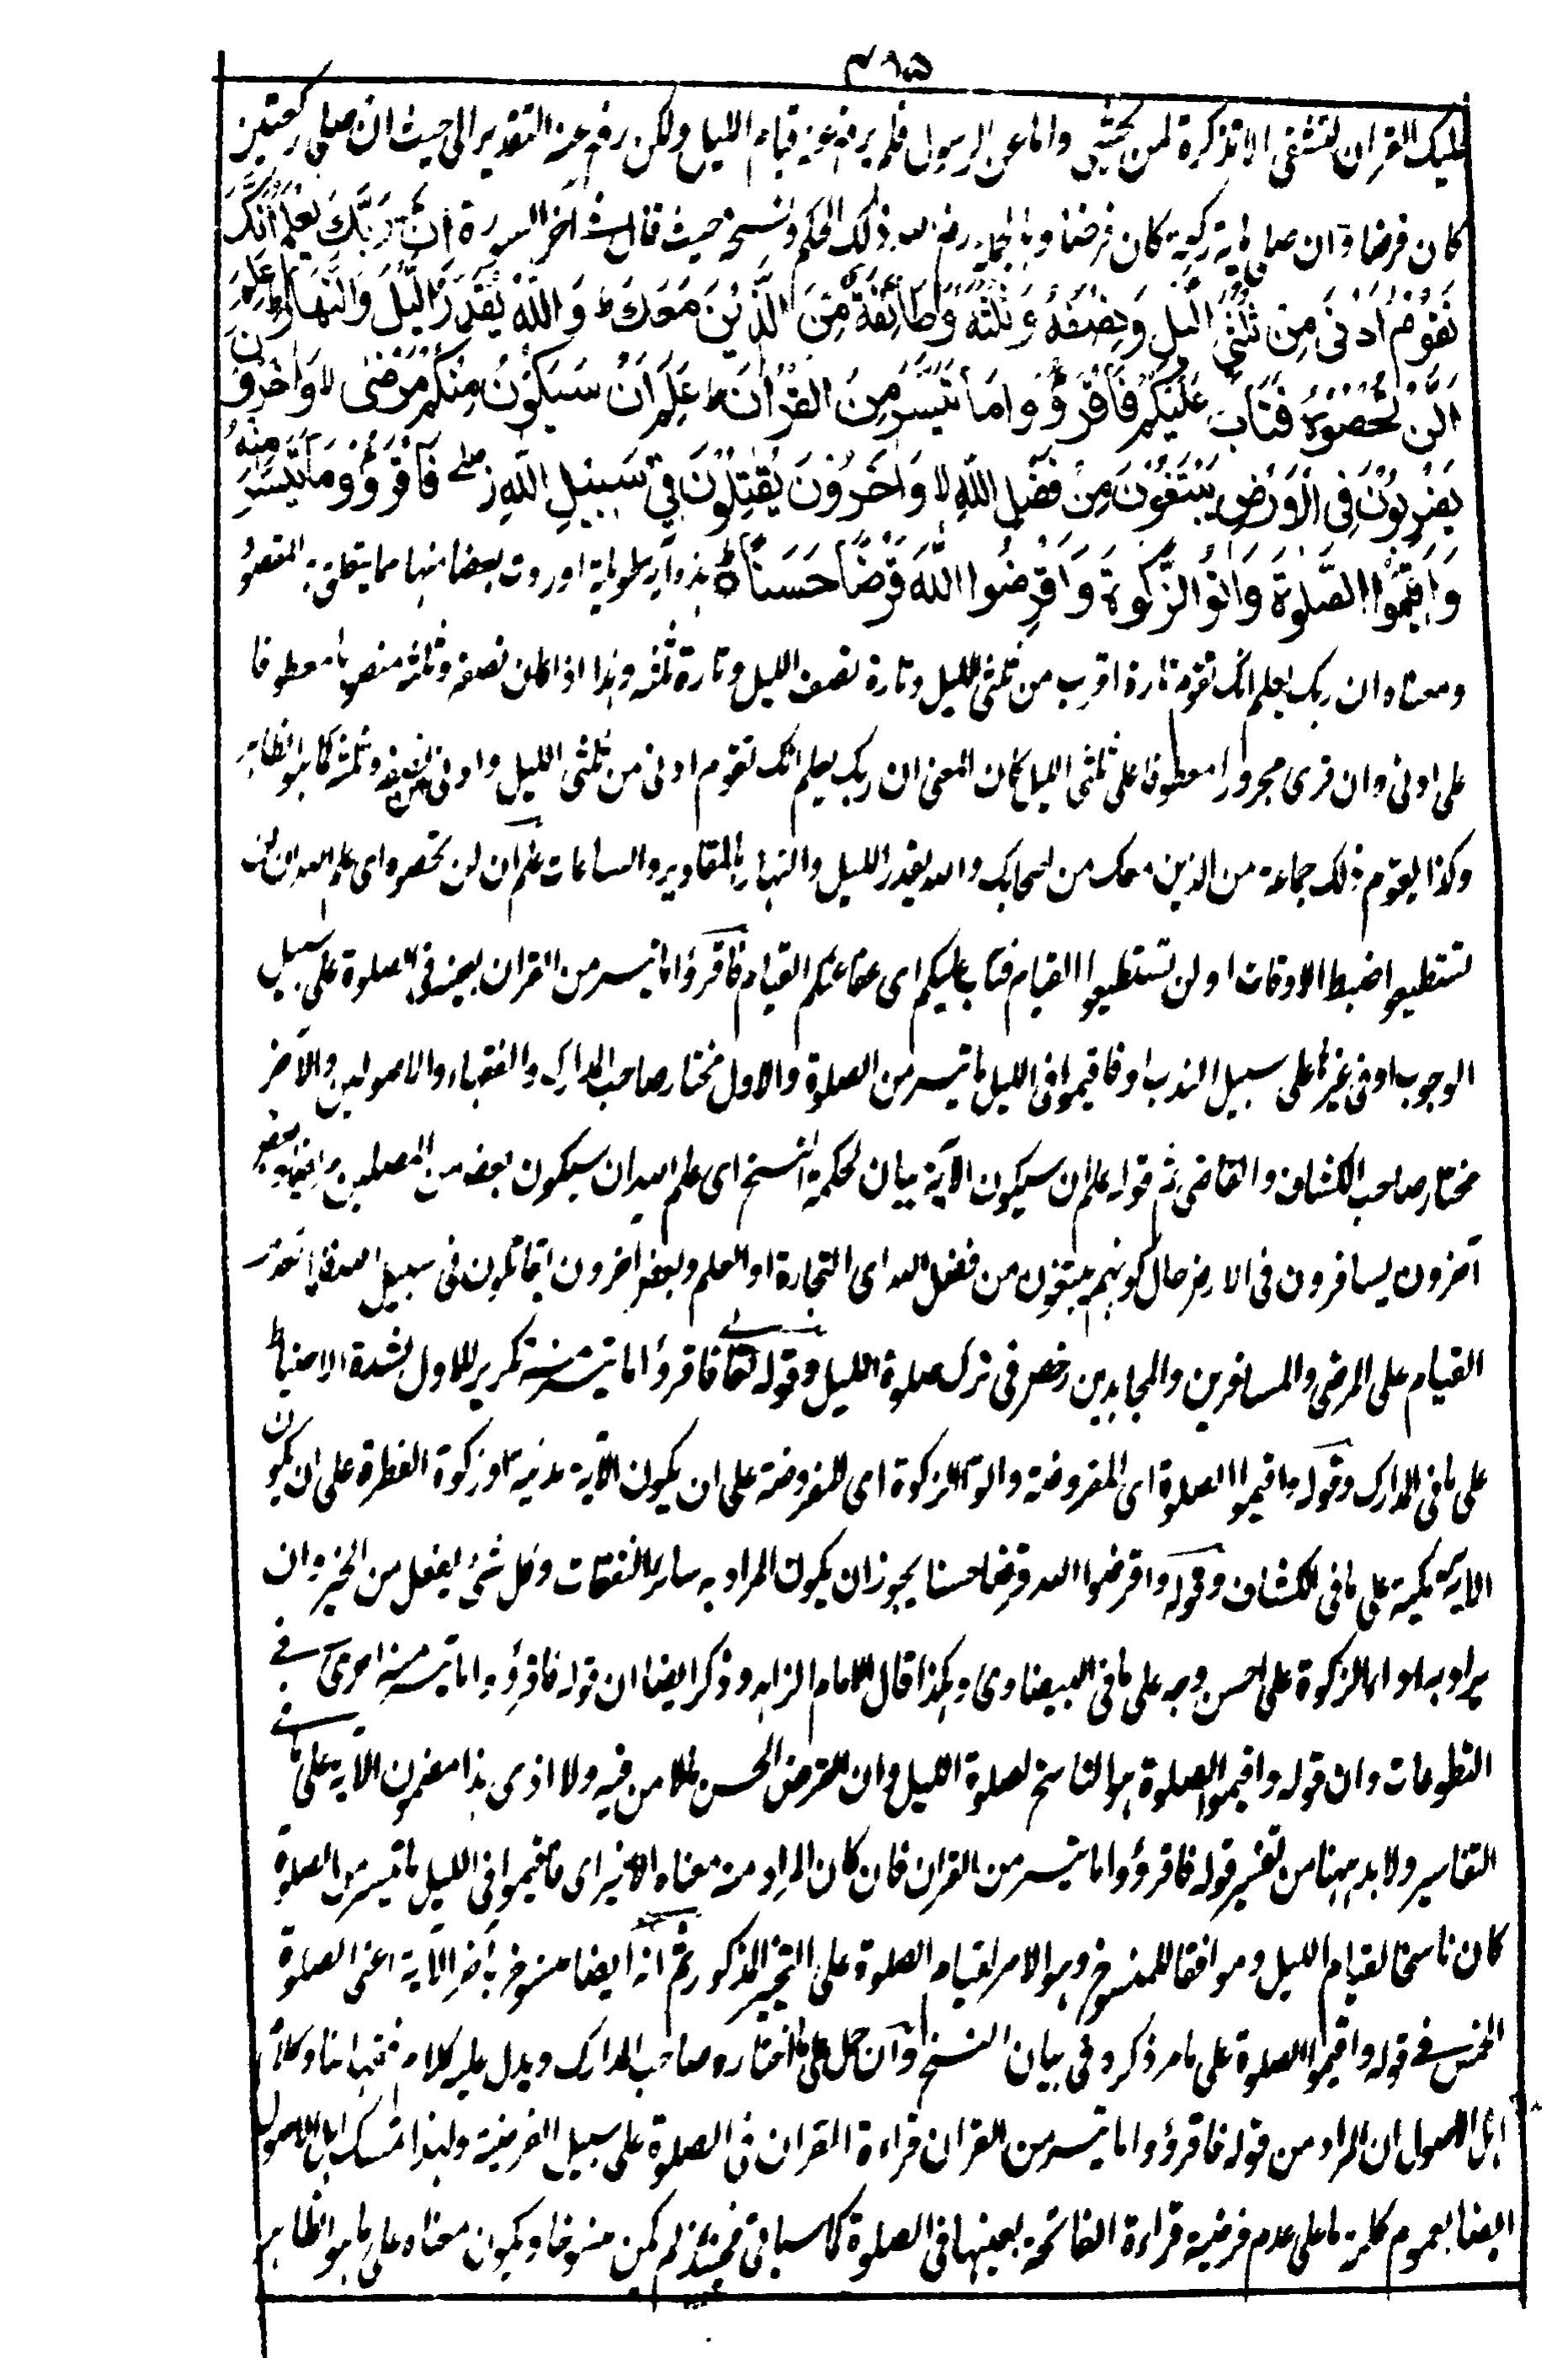 ۴۹۵
عليك القران لتشقى الا تذكرة لمن يخشى واما عن الرسول فلم يرفع عنه قيام الليل ولكن رفع عنه التقدير الى حيث ان صلى ركعتين
كان فرضا وان صلى مائة ركعة كان فرضا وبالجملة رفع الله ذلك الحكم ونسخه حيث قال فى آخر السورة اِنَّ رَبَّكَ يَعْلَمُ اَنَّكَ
تَقُوْمُ اَدْنٰى مِنْ ثُلُثَىِ الَّيْلِ وَنِصْفَهٗ وَثُلُثَهٗ وَطَآئِفَةٌ مِّنَ الَّذِيْنَ مَعَكَ ط وَاللّٰهُ يُقَدِّرُ الَّيْلَ وَالنَّهَارَ ط عَلِمَ
اَنْ لَّنْ تُحْصُوْهُ فَتَابَ عَلَيْكُمْ فَاقْرَءُوْا مَا تَيَسَّرَ مِنَ الْقُرْاٰنِ ط عَلِمَ اَنْ سَيَكُوْنُ مِنْكُمْ مَّرْضٰى لا وَاٰخَرُوْنَ
يَضْرِبُوْنَ فِى الْاَرْضِ يَبْتَغُوْنَ مِنْ فَضْلِ اللّٰهِ لا وَاٰخَرُوْنَ يُقَاتِلُوْنَ فِىْ سَبِيْلِ اللّٰهِ ز صلے فَاقْرَءُوْا مَا تَيَسَّرَ مِنْهُ
وَاَقِيْمُوا الصَّلٰوةَ وَاٰتُوا الزَّكٰوةَ وَاَقْرِضُوا اللّٰهَ قَرْضًا حَسَنًا ط هذه آية طويلة اوردت بعضا منها مما يتعلق به المقصود
ومعناه ان ربك يعلم انك تقوم تارة اقرب من ثلثى الليل وتارة نصف الليل وتارة ثلثه وهذا اذا كان نصفه وثلثه منصوبا معطوفا
على ادنى وان قرى مجرورا معطوفا على ثلثى الليل كان المعنى ان ربك يعلم انك تقوم ادنى من ثلثى الليل وادنى من نصفه وثلثه كما هو الظاهر
وكذا يقوم ذلك جماعة من الذين معك من اصحابك والله يقدر الليل والنهار بالمقادير والساعات علم ان لن تحصوه اى علم الله ان لن
تستطيعوا ضبط الاوقات او لن تستطيعوا القيام فتاب عليكم اى عفا عنكم القيام فاقرؤا ما تيسر من القران بعينه فى الصلوة على سبيل
الوجوب او فى غيرها على سبيل الندب او فاقيموا فى الليل ما تيسر من الصلوة والاول مختار صاحب المدارك والفقهاء والاصوليين والآخر
مختار صاحب الكشاف والقاضى ثم قوله علم ان سيكون الآية بيان لحكمة النسخ اى علم الله ان سيكون بعض من المصلين مرضى وبعض
آخرون يسافرون فى الارض حال كونهم يبتغون من فضل الله اى التجارة او العلم وبعض آخرون يقاتلون فى سبيل الله فلما تعذر
القيام على المرضى والمسافرين والمجاهدين رخص فى ترك صلوة الليل وقوله تعالى فاقرؤا ما تيسر منه تكرير للاول لشدة الاحتياط
على ما فى المدارك وقوله واقيموا الصلوة اى المفروضة وآتوا الزكوة اى المفروضة على ان يكون الآية مدنية او زكوة الفطرة على ان يكون
الآية مكية على ما فى الكشاف وقوله واقرضوا الله قرضا حسنا يجوز ان يكون المراد به سائر النفقات وكل شئ يفعل من الخير وان
يراد به اداء الزكوة على احسن وجه على ما فى البيضاوى وهكذا قال الامام الزاهد وذكر ايضا ان قوله فاقرؤوا ما تيسر منه اخرى فى
التطوعات وان قوله واقيموا الصلوة هو الناسخ لصلوة الليل وان القرض الحسن بلا من فيه ولا اذى هذا مضمون الآية على ما فى
التفاسير ولا بد ههنا من تفسير قوله فاقرؤوا ما تيسر من القران فان كان المراد منه معناه الاخير اى فاقيموا فى الليل ما تيسر من الصلوة
كان ناسخا لقيام الليل وموافقا للمنسوخ وهو الامر بقيام الصلوة على التخيير المذكور ثم انه ايضا منسوخ بآخر الآية اعنى الصلوة
الخمس فى قوله واقيموا الصلوة على ما مر ذكره فى بيان النسخ وان حمل على ما اختاره صاحب المدارك ويدل عليه كلام فقهائنا وكلام
اهل الاصول ان المراد من قوله فاقرؤوا ما تيسر من القران قراءة القران فى الصلوة على سبيل الفرضية ولهذا تمسك اهل الاصول
ايضا بعموم كلمة ما على عدم فرضية قراءة الفاتحة بعينها فى الصلوة كما سياتى فحينئذ لم يكن منسوخا ويكون معناه على ما هو الظاهر